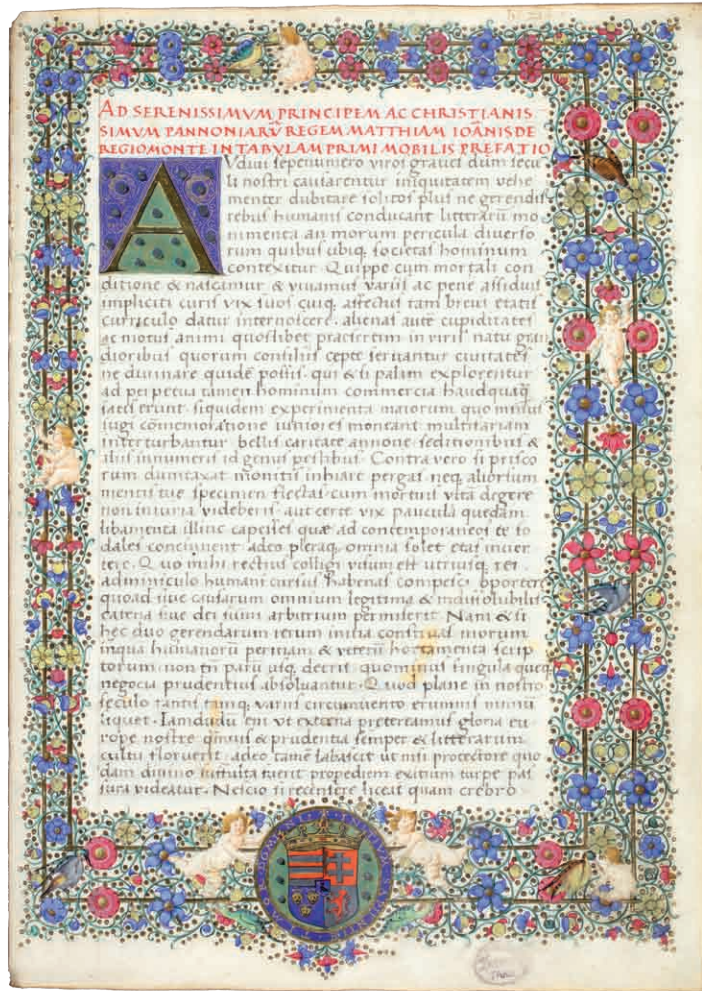 AD SERENISSIMVM PRINCIPEM AC CHRISTIANIS
SIMVM PANNONIARŪ REGEM MATTHIAM IOĀNIS DE
REGIOMONTE IN TABVLAM PRIMI MOBILIS PREFATIO
AVdiui sepenumero viros graues dum secu
li nostri causarentur iniquitatem vehe
menter dubitare solitos plus ne gerendis
rebus humanis conducant litterarū mo
nimenta an morum pericula diverso
rum quibus ubiq societas hominum
contexitur Quippe cum mortali con
ditione & nascimur & viuamus variis ac pene assiduis
impliciti curis vix suos cuiq affectus tam breui etatis
curriculo datur internoscere. alienas autē cupiditates
ac motus animi quoslibet praesertim in viris natu gran
dioribus quorum consiliis cepte seruantur ciuitates
ne diuinare quidē possis. qui & si palam explorentur
ad perpetua tamen hominum commercia haudquaq̄
satis erunt. siquidem experimenta maiorum quo minus
iugi cōmemoratione iuniores moneant multifariam
interturbantur bellis caritate annone seditionibus &
aliis innumeris id genus pestibus. Contra vero si prisco
rum dumtaxat monitis inhiare pergas neq aliorsum
mentis tue specimen flectas cum mortuis vitā degere
non iniuria videberis. aut certe vix paucula quedam
libamenta illinc capesses quæ ad contemporaneos et so
dales concinnent adeo pleraq omnia solet etas inuer
tere. Quo mihi rectius colligi visum est utriusq rei
adminiculo humani cursus habenas compesci oportere
quoad siue causarum omnium legitima & indissolubilis
catena siue dei summi arbitrium permiserit Nam & si
hec duo gerendarum rerum initia morum
inqua humanorū peritiam & veterū scrip
torum non tn̄ parū usq decrit quominus singula queq
negocia prudentius absoluantur. Quod plane in nostro
seculo tantis varius circumuento erumnis nimiū
liquet. Iamdudū eni vt externa pretereamus gloria eu
rope nostre & prudentia semper & litterarum
cultu floruerit. adeo tamē labascit ut nisi protectore quo
dam diuino suffulta fuerit propediem exitium turpe pas
sura videatur. Nescio si recensere liceat quam crebro